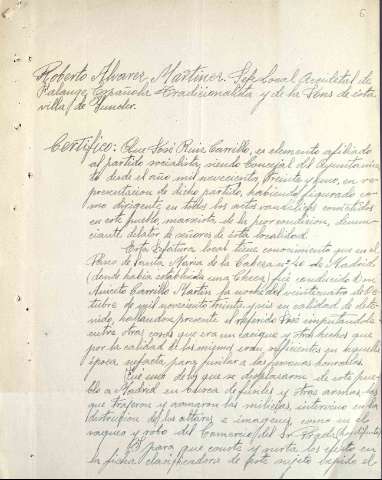 6
Roberto Alvarez Martinez Jefe Local Accidental de
Falange Española Tradicionalista y de la Jons de esta
villa de
Certifico: Que José Ruiz Carrillo, es elemento afiliado
al partido socialista, siendo Concejal del Ayuntamien
to desde el año mil novecientos treinta y uno, en re
presentacion de dicho partido, habiendo figurado co
mo dirigente en todos los actos vandalicos cometidos
en este pueblo, marxista de la peor condicion, denun
ciante delator de señores de esta localidad.
Esta Jefatura local tiene conocimiento que en el
Paseo de Santa Maria de la Cabeza nº de Madrid
(donde habia establecida una Checa) fué conducido Don
Aniceto Carrillo Martin, la noche del veintiuno de Oc
tubre de mil novecientos treinta y seis en calidad de dete
nido, hallandose presente el referido José imputandole
entre otras cosas que era un cacique y otros hechos que
por la calidad de los mismos eran suficientes en aquella
época nefasta para fusilar a las personas honradas.
Fué uno de los que se desplazaron de este pue
blo a Madrid en busca de fusiles y otras armas los
que trajeron y armaron las milicias, intervino en la
destruccion de los altares e imagenes, como en el
saqueo y robo del Comercio del Sr Prada
Y para que conste y surta los efectos en
la ficha clasificadora de este sujeto expido el